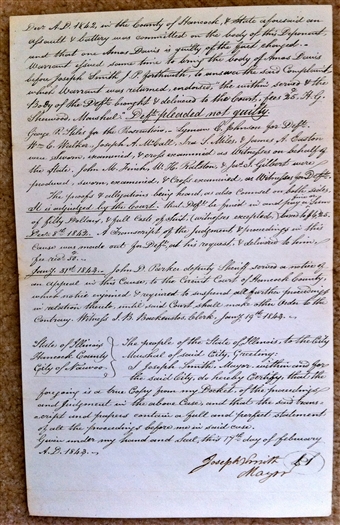 Decr A.D. 1843, in the County of Hancock, & State aforesaid an
assault & battery was committed on the body of this Deponent,
and that one Amos Davis is guilty of the fact charged.
Warrant issued same time to bring the body of Amos Davis
before Joseph Smith, J.P. forthwith, to answer the said Complaint,
which Warrant was returned, endorsed, the within served & the
Body of the Deft brought & delivered to the Court, fees 25c H. G.
Sherwood, Marshal. Deft pleaded not guilty.
George P. Stiles for the Prosecution. Lyman E. Johnson for Deft.
Wm C. Walker, Joseph A. McCall, Ira S. Miles, & James A. Easton
were sworn, examined, & cross examined as Witnesses on behalf of
the State. John M. Finch, W. H. Rollston, & Jas. I. Gilbert were
produced, sworn, examined, & Cross examined, as Witnesses for Deft.
The proofs & allegations being heard, as also Counsel on both sides,
It is adjudged by the Court, that Deft be fined in and pay a Sum
of fifty Dollars, & full Costs of Suit (witnesses excepted)
Decr 5th 1843. A Transcript of the Judgment & proceedings in this
Cause was made out for Deft. at his request, & delivered to him.
fee recd 50.
Jany 31st 1844. John D. Parker deputy Sheriff serves a notice of
an Appeal in this Cause, to the Circuit Court of Hancock County,
which notice enjoined & required to suspend all further proceedings
in relation thereto until said Court shall make other Order to the
Contrary. Witness J. B. Backenstos, Clerk, Jany 19th 1844.
State of Illinois
Hancock County
City of Nauvoo
The people of the State of Illinois, to the City
Marshal of said City, Greeting:
I Joseph Smith, Mayor within and for
the said City, do hereby Certify, that the
foregoing is a true Copy from my Docket, of the proceedings
and Judgment in the above Case, and that the said trans-
cript and papers contain a full and perfect statement
of all the proceedings before me in said case.
Given under my hand and Seal, this 17th day of february
A.D. 1844.
Joseph Smith LS
Mayor